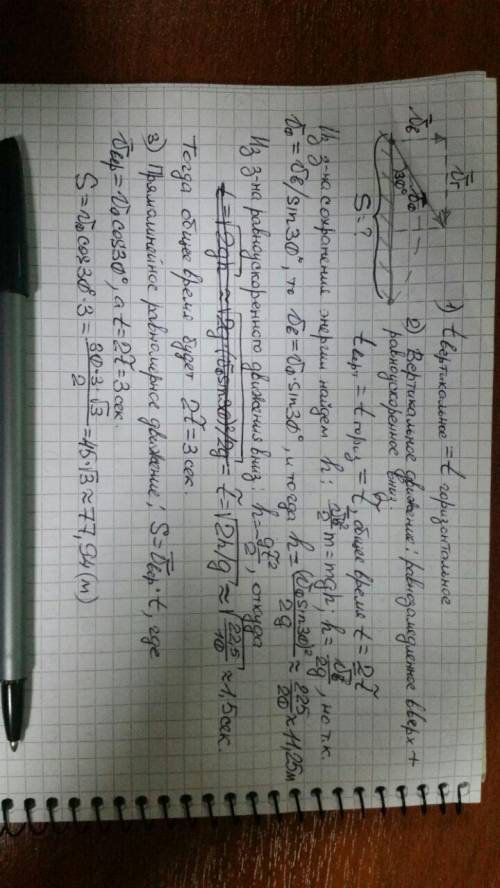 v̄г
v̄в
v̄₀
30°
S = ?
1) t вертикальное = t горизонтальное
2) Вертикальное движение: равнозамедленное вверх +
равноускоренное вниз
t верт = t гориз = t̃, общее время t = 2t̃
Из з-на сохранения энергии найдем h: v̄в²/2 m = mgh; h = v̄в²/2g, но т.к.
v̄₀ = v̄в/sin30°, то v̄в = v̄₀ sin30°, и тогда h = (v̄₀ sin30)²/2g ≈ 225/20 ≈ 11,25м
Из з-на равноускоренного движения вниз: h = gt̃²/2, откуда
t = √2gh ≈ √2g(v̄₀ sin30)²/2g = t̃ = √2h/g ≈ √225/10 ≈ 1,5 сек.
Тогда общее время будет 2t̃ = 3 сек.
3) Прямолинейное равномерное движение; S = v̄гор · t, где
v̄гор = v̄₀ cos30°, а t = 2t̃ = 3 сек.
S = v̄₀ cos30° · 3 = 30·3√3/2 = 45·√3 ≈ 77,94 (м)